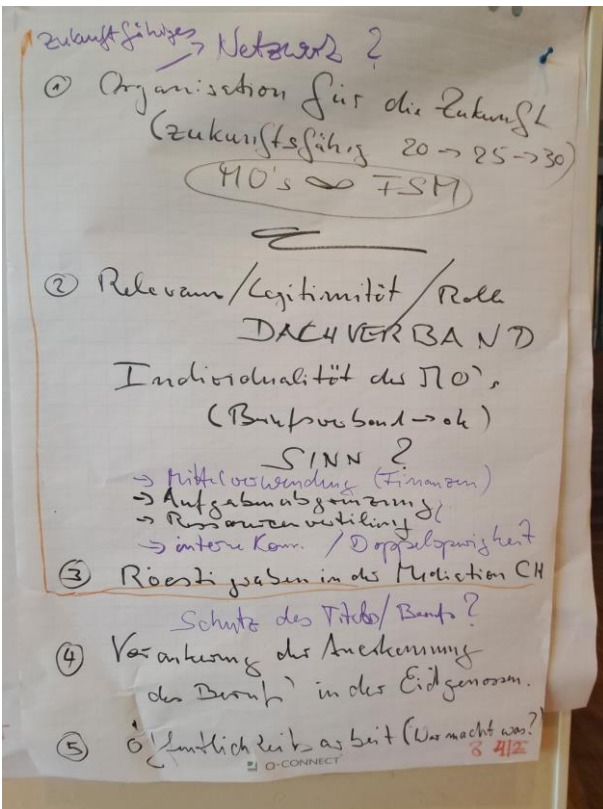 Zukunftfähiges
→ Netzwerk ?
① Organisation für die Zukunft
(zukunftsfähig 20 → 25 → 30)
MO's ∞ FSM
② Relevanz/Legitimität/Rolle
DACHVERBAND
Individualität der MO's,
(Berufsverband → ok)
SINN ?
→ Mittelverwendung (Finanzen)
→ Aufgabenabgrenzung
→ Ressourcenverteilung
→ interne Kom. / Doppelspurigkeit
③ Röestigraben in der Mediation CH
Schutz des Titels/Berufs?
④ Verankerung der Anerkennung
des Berufs in der Eidgenossen.
⑤ Öffentlichkeitsarbeit (Wer macht was?)
Q-CONNECT